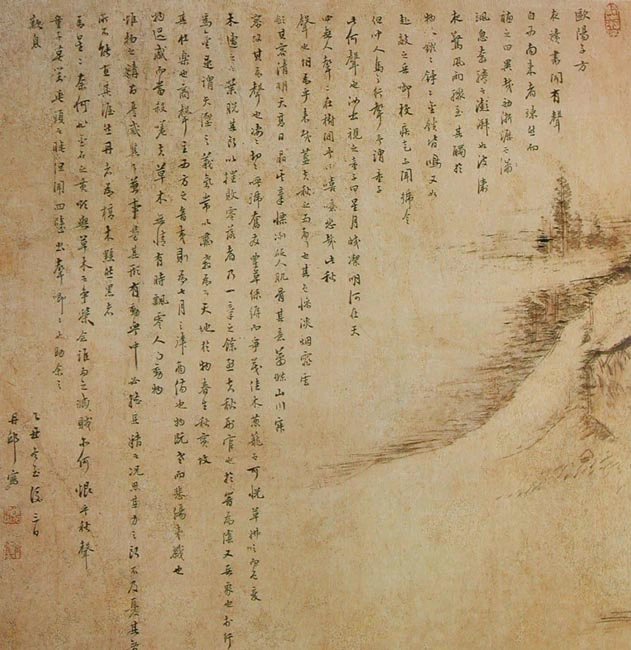 歐陽子方
夜讀書聞有聲
自西南來者悚然而
聽之曰異哉初淅瀝之蕭
颯忽奔騰之澎湃如波濤
夜驚風雨驟至其觸於
物也鏦鏦錚錚金鐵皆鳴又如
赴敵之兵銜枚疾走不聞號令
但聞人馬之行聲予謂童子
此何聲也汝出視之童子曰星月皎潔明河在天
四無人聲聲在樹間予曰噫嘻悲哉此秋
聲也胡爲乎來哉蓋夫秋之爲狀也其色慘淡烟霏雲
斂其容清明天高日晶其氣慄冽砭人肌骨其意蕭條山川寂
寥故其爲聲也凄凄切切呼號奮發豐草綠縟而爭茂佳木葱籠而可悅草拂之而色變
木遭之而葉脫其所以摧敗零落者乃一氣之餘烈夫秋刑官也於時爲陰又兵象也於行
爲金是謂天地之義氣常以肅殺爲心天地於物春生秋實故
其在樂也商聲主西方之音夷則爲七月之律商傷也物既老而悲傷夷戮也
物過盛而當殺嗟夫草木無情有時飄零人爲動物
惟物之靈百憂感其心萬事勞其形有動于中必搖其精而况思其力之所不及憂其智
之所不能宜其渥然丹者爲槁木黟然黑者
爲星星奈何以金石之質欲與草木而爭榮念誰爲之戕賊亦何恨乎秋聲
童子莫對垂頭而睡但聞四壁蟲聲喞喞如助余之
歎息
乙丑冬至後三日
丹邱寫